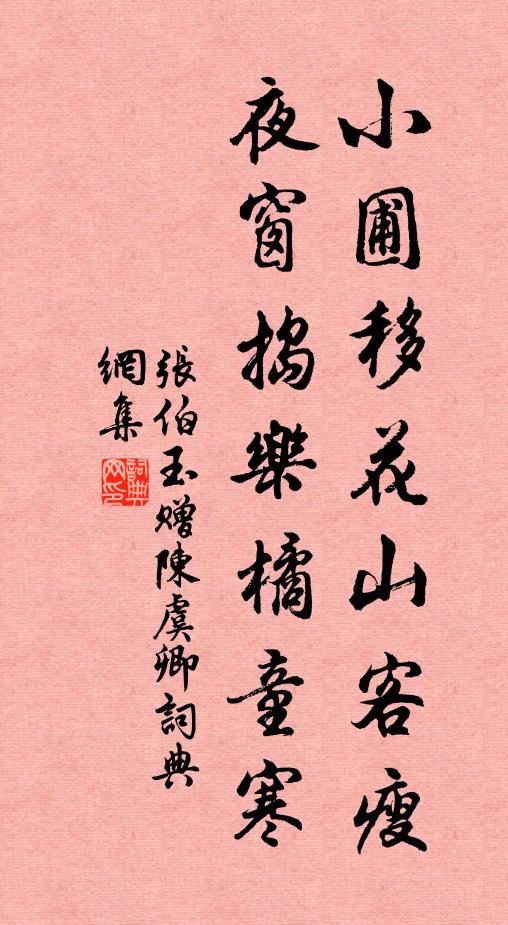 小圃移花山客瘦
夜窗搗樂橘童寒
張伯玉贈陳虞卿詞典
網集
詞典
网印